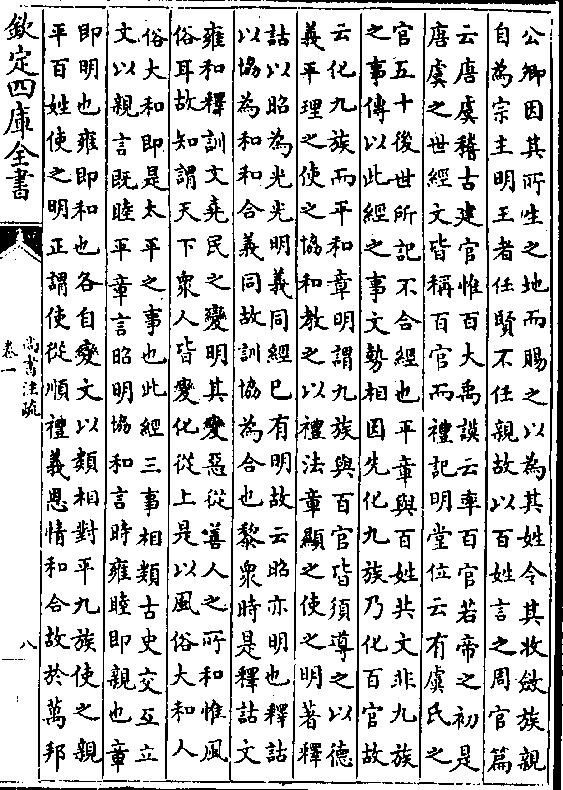 公卿因其所生之地而賜之以為其姓令其收斂族親
自為宗主明王者任賢不任親故以百姓言之周官篇
云唐虞稽古建官惟百大禹謨云率百官若帝之初是
唐虞之世經文皆稱百官而禮記明堂位云有虞氏之
官五十後世所記不合經也平章與百姓共文非九族
之事傳以此經之事文勢相因先化九族乃化百官故
云化九族而平和章明謂九族與百官皆須導之以德
義平理之使之協和教之以禮法章顯之使之明著釋
詁以昭為光光明義同經已有明故云昭亦明也釋詁
以協為和和合義同故訓協為合也黎衆時是釋詁文
雍和釋訓文堯民之變明其變惡從善人之所和惟風
俗耳故知謂天下衆人皆變化從上是以風俗大和人
俗大和即是太平之事也此經三事相類古史交互立
文以親言既睦平章言昭明協和言時雍睦即親也章
即明也雍即和也各自變文以類相對平九族使之親
平百姓使之明正謂使從順禮義恩情和合故於萬邦
欽定四庫全書
尚書注疏
卷一
八